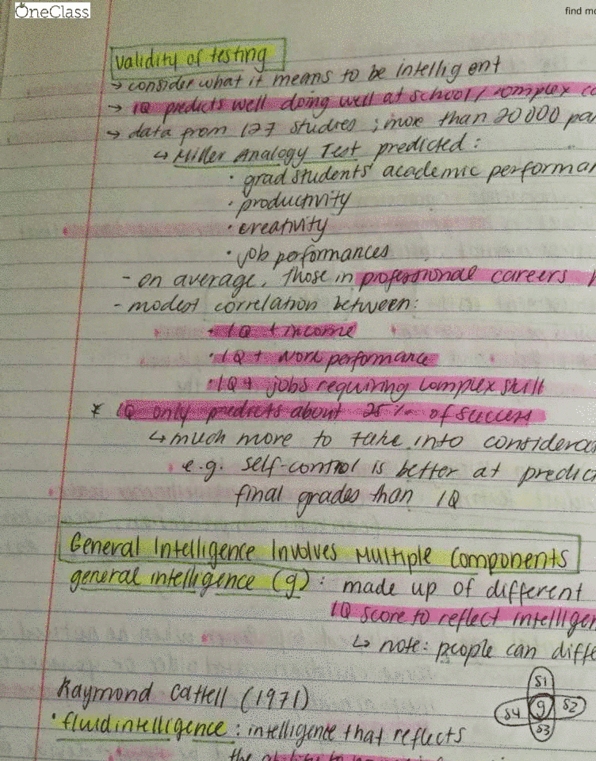 OneClass
find mo
validity of testing
→ consider what it means to be intelligent
→ IQ predicts well doing well at school / complex ca
→ data from 127 studies ; more than 20 000 pa
↳ Miller Analogy Test predicted :
· grad students' academic performan
· productivity
· creativity
· job performances
- on average, those in professional careers h
- modest correlation between:
· IQ + income
· IQ + work performance
· IQ + jobs requiring complex skill
* IQ only predicts about 25% of success
↳ much more to take into considera
e.g: self-control is better at predic
final grades than IQ
General Intelligence Involves Multiple Components
general intelligence (g) : made up of different
IQ score to reflect intelligen
↳ note: people can diffe
Raymond Cattell (1971)
S1
S4 g S2
S3
· fluid intelligence : intelligence that reflects
the ability to